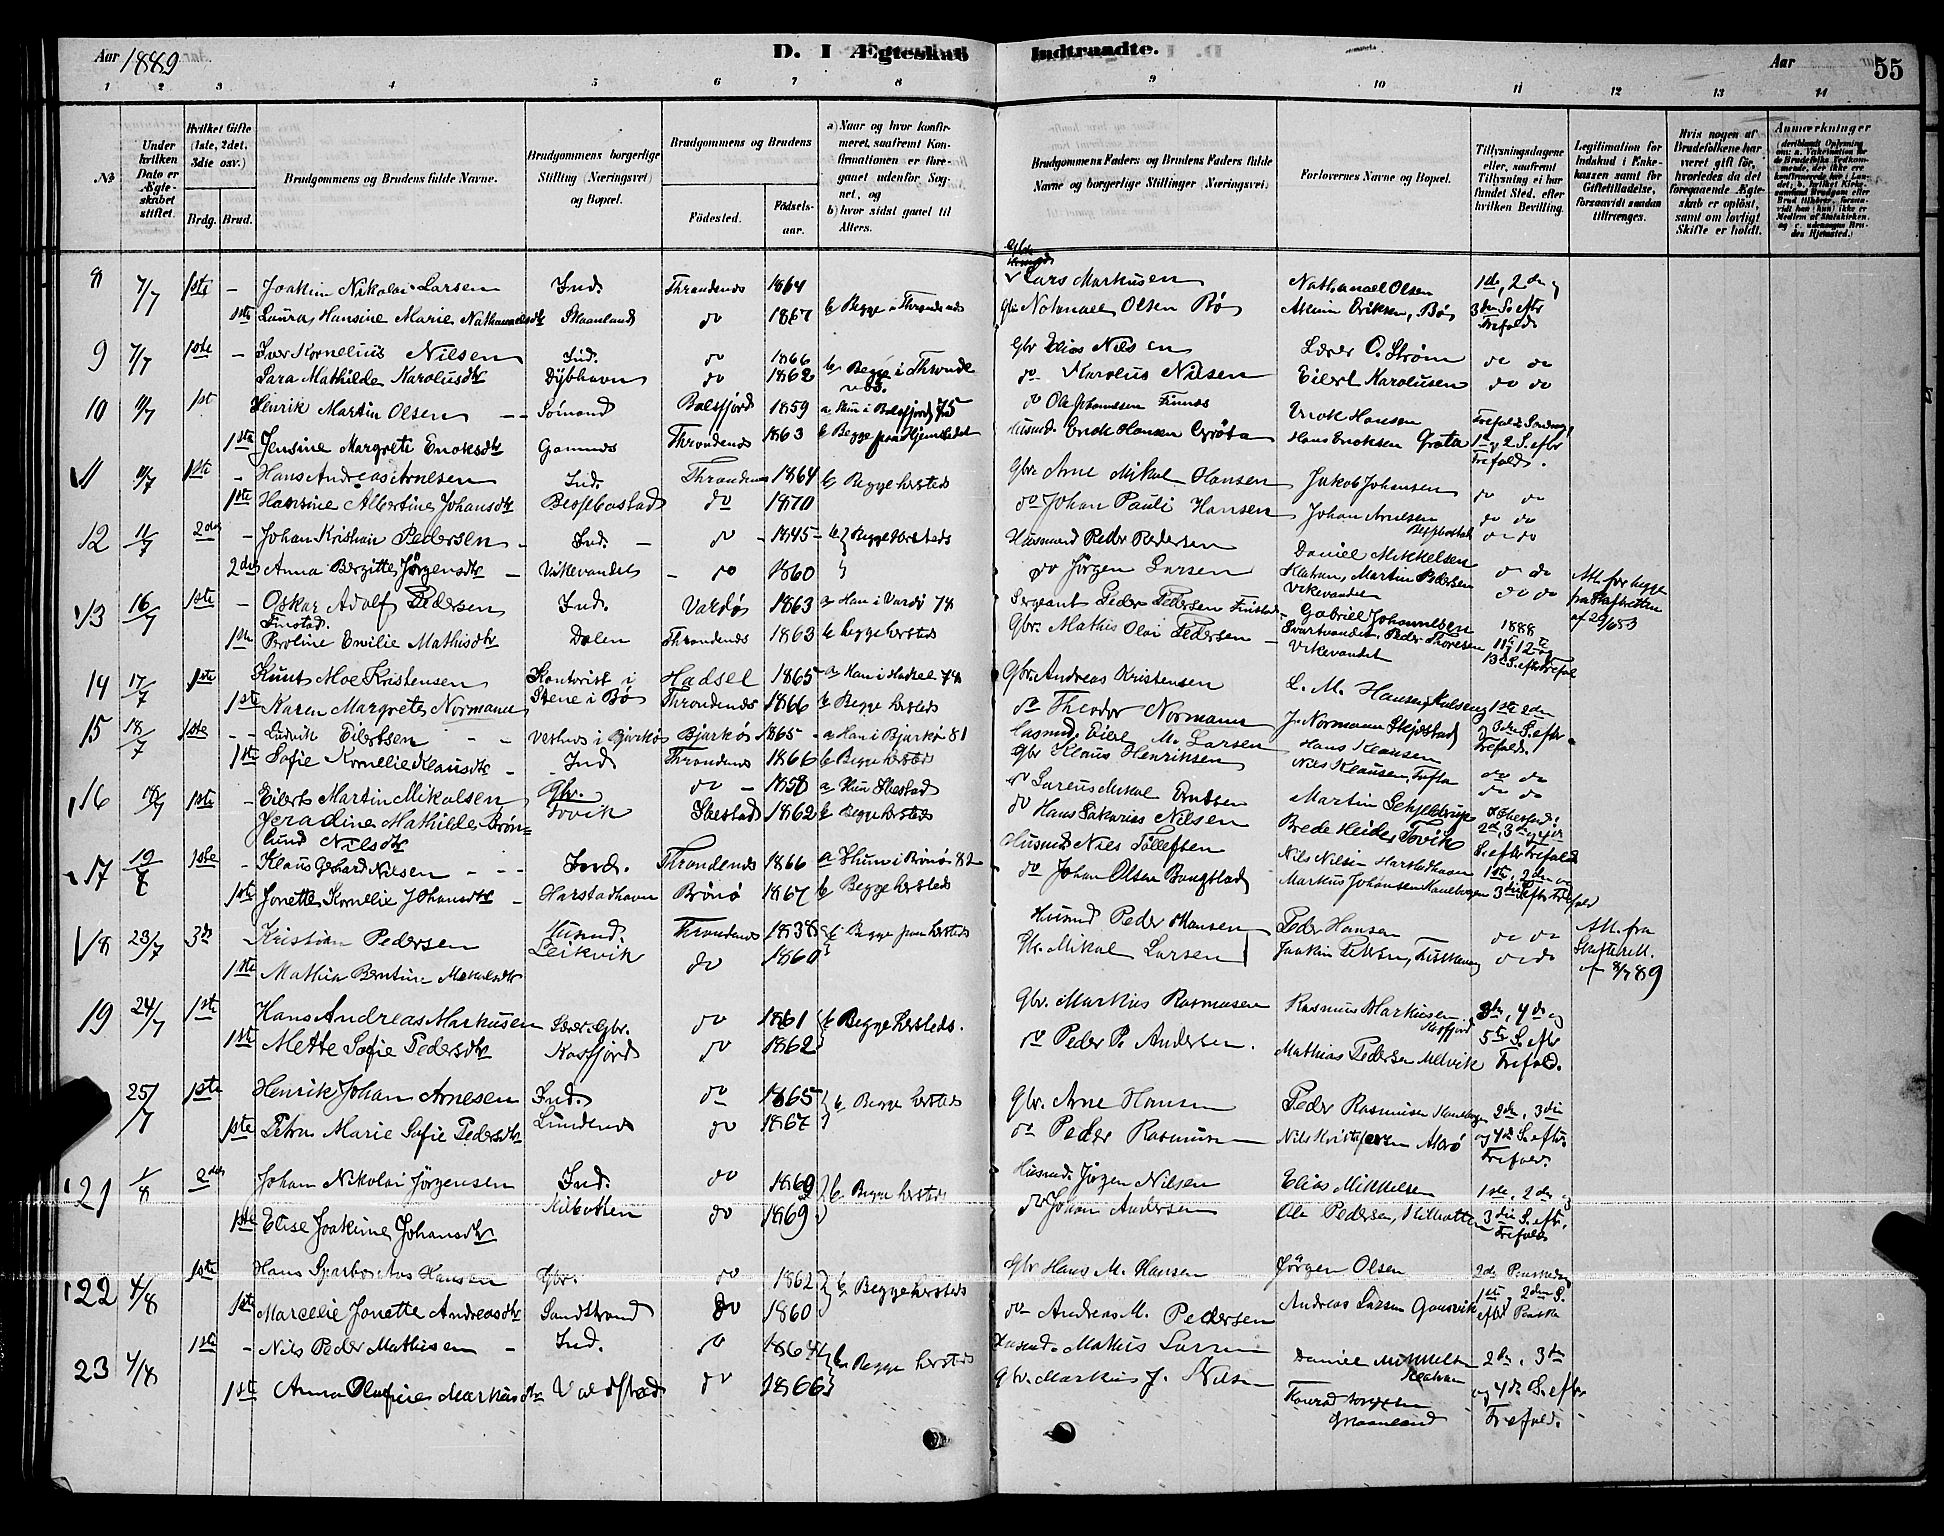 Aar 1889
D. I Ægteskab
Indtraadte.
Aar
55
1 2 3 4 5 6 7 8 9 10 11 12 13 14
No
Under hvilken Dato er Ægteskabet stiftet.
Hvilket Gifte (1ste, 2det, 3die osv.)
Brdg. Brud.
Brudgommens og Brudens fulde Navne.
Brudgommens borgerlige Stilling (Næringsvei) og Bopæl.
Brudgommens og Brudens
Fødested.
Fødsels-aar.
a) Naar og hvor konfirmeret, saafremt Konfirmationen er foregaaet udenfor Sognet, og
b) hvor sidst gaaet til Alters.
Brudgommens Faders og Brudens Faders fulde Navne og borgerlige Stillinger (Næringsvei)
Forlovernes Navne og Bopæl.
Tillysningsdagene eller, saafremt Tillysning ei har fundet Sted, efter hvilken Bevilling.
Legitimation for Indskud i Enkekassen samt for Giftetilladelse, forsaavidt saadan tiltrænges.
Hvis nogen af Brudefolkene har været gift før, hvorledes da det foregaaende Ægteskab er opløst, samt om lovligt Skifte er holdt.
Anmærkninger
8 7/7 1ste - Joakim Nikolai Larsen Ind. Throndenes 1864 Lars Markusen Nathanael Olsen 1ste, 2den og
1ste Laura Hansine Marie Nathanaelsdtr Skaanland do 1867 b Begge i Throndenes Gbr Natanael Olsen Bø Eriksen, Bø 3die S. eftr Trefold
9 7/7 1ste - Iver Kornelius Nilsen Ind. do 1866 Gbr Elias Nilsen Lærer O. Strøm do do
Sara Mathilde Karolusdtr Dybhavn do 1862 b Begge i Thronde do Karolus Nilsen Eilert Karolusen do do
10 11/7 1st Henrik Martin Olsen Sømand Balsfjord 1859 a Han i Balsfjord 75 do Ole Johannesen Enok Hansen
1ste Jensine Margrete Enoksdtr Gamnes Throndenes 1863 b Begge paa Hjemstedet Husmd. Enok Hansen Grøta Hans Enoksen Grøta 1 og 2 S. eftr Trefold.
11 11/7 1ste - Hans Andreas Arnesen Ind. Throndenes 1864 b Begge hersteds Gbr Arne Mikal Hansen Jakob Johansen do do
1ste Hansine Albertine Johansdtr Bessebostad do 1870 do Johan Pauli Hansen Johan Arnesen Bessebostad do do
12 11/7 2den - Johan Kristian Pedersen Ind. do 1845 b Begge hersteds Husmand Peder Pedersen Daniel Mikkelsen do do
2den Anna Bergitte Jørgensdtr Vikevandet do 1860 do Jørgen Larsen Martin Pedersen Vikevandet do do Att. for begge fra Skifteretten
13 16/7 1ste - Oskar Adolf Pedersen Finstad. Ind. Vardø 1863 a Han i Vardø 78 Sergeant Peder Pedersen Finstad Gabriel Johannesen 1888
1ste Peroline Emilie Mathisdtr Dalen Throndenes 1863 b begge hersteds Gbr. Mathis Olai Pedersen Svartvandet, Peder Thoresen Vikevandet 11te 12te og 13de S. eftr Trefol
14 17/7 1ste Knut Moe Kristensen Kontorist i Hadsel 1865 a Han i Hadsel 78 Gbr. Andreas Kristensen L. M. Hansen 1ste 2den
1ste Karen Margrete Normann Stene i Bø Throndenes 1866 b Begge hersteds do Theodor Normann J. Normann Skjostad og 3die S. eftr Trefold.
15 18/7 1ste - Ludvik Eilertsen i Bjarkø Bjarkø 1865 a Han i Bjarkø 81 Husmd. Eilert M. Larsen Hans Klausen
1ste Sofie Kornelie Klausdtr Ind Throndenes 1866 b Begge hersteds Gbr Klaus Henriksen Nils Klausen, Tufta do do
16 18/7 1ste - Eilert Martin Mikalsen Gbr. do 1858 a Hun Ibestad do Lareus Mikal Knutsen Martin Schjelderup do do
Jeradine Mathilde Brønlund Nilsdtr Tovik Ibestad 1862 b Begge hersteds do Hans Sakarias Nilsen Brede Heide Tovik 2den, 3die S. eftr Trefold
17 19/7 1ste - Klaus Gerhard Nilsen Ind. Throndenes 1866 a Hun i Brønø 82 Husmd Nils Tollefsen Nils Nilsen Harstadhavn 1ste, 2den og
1ste Jonette Kornelie Johansdtr Harstadhavn Brønø 1867 b Begge hersteds do Johan Olsen Bangstad Markus Johansen Kanebogen 3die S. eftr Trefold
18 23/7 3de Kristian Pedersen Husmd. Throndenes 1838 b Begge paa hersteds Husmd Peder Hansen Peder Hansen do do Att. fra
1ste Mathia Bentine Mikalsdtr Leikvik do 1860 Mikal Larsen Joakim do do Skifterett. af 8/7 89
19 24/7 1ste Hans Andreas Markusen Gbr. do 1861 b Begge hersteds. Gbr. Markus Rasmusen Rasmus Markusen 3die, 4de og
1ste Mette Sofie Pedersdtr Kasfjord do 1862 do Peder P. Andersen. Mathias Pedersen Melvik 5te S. eftr Trefold.
25/7 1ste Henrik Johan Arnesen Ind. do 1865 b Begge hersteds Gbr. Arne Hansen Peder Rasmusen Kanebogen 2den, 3die
1ste Petra Marie Sofie Pedersdtr Lundenes do 1867 do Peder Rasmusen Nils Kristofersen og 4de S. eftr. Trefold.
21 1/8 2den Johan Nikolai Jørgensen Ind. do 1860 b. Begge hersteds Husmd. Jørgen Nilsen Elias Mikkelsen 1ste, 2den og
1ste Elise Joakime Johansdtr Kilbotten do 1869 do Johan Andersen Ole Pedersen, Kilbotten 3die S. eftr. Trefold
22 4/8 1ste Hans Sparboe Aas Hansen Gbr. do 1862 b Begge hersteds Gbr Hans M. Hansen Jørgen Olsen 2den Pinsedag
1ste Marcelie Jonette Andreasdtr Sandstrand do 1860 do Andreas M. Pedersen Andreas Larsen Gausvik 1ste, 2den S. eftr Pinse
23 4/8 1ste - Nils Peder Mathisen Ind. do 1864 b Begge hersteds Husmd. Mathis Larsen Daniel Mikkelsen 2den, 3die
1ste Anna Olufine Markusdtr do 1866 Gbr. Markus J. Nilsen Konrad Graanland og 4de S. eftr Trefold.